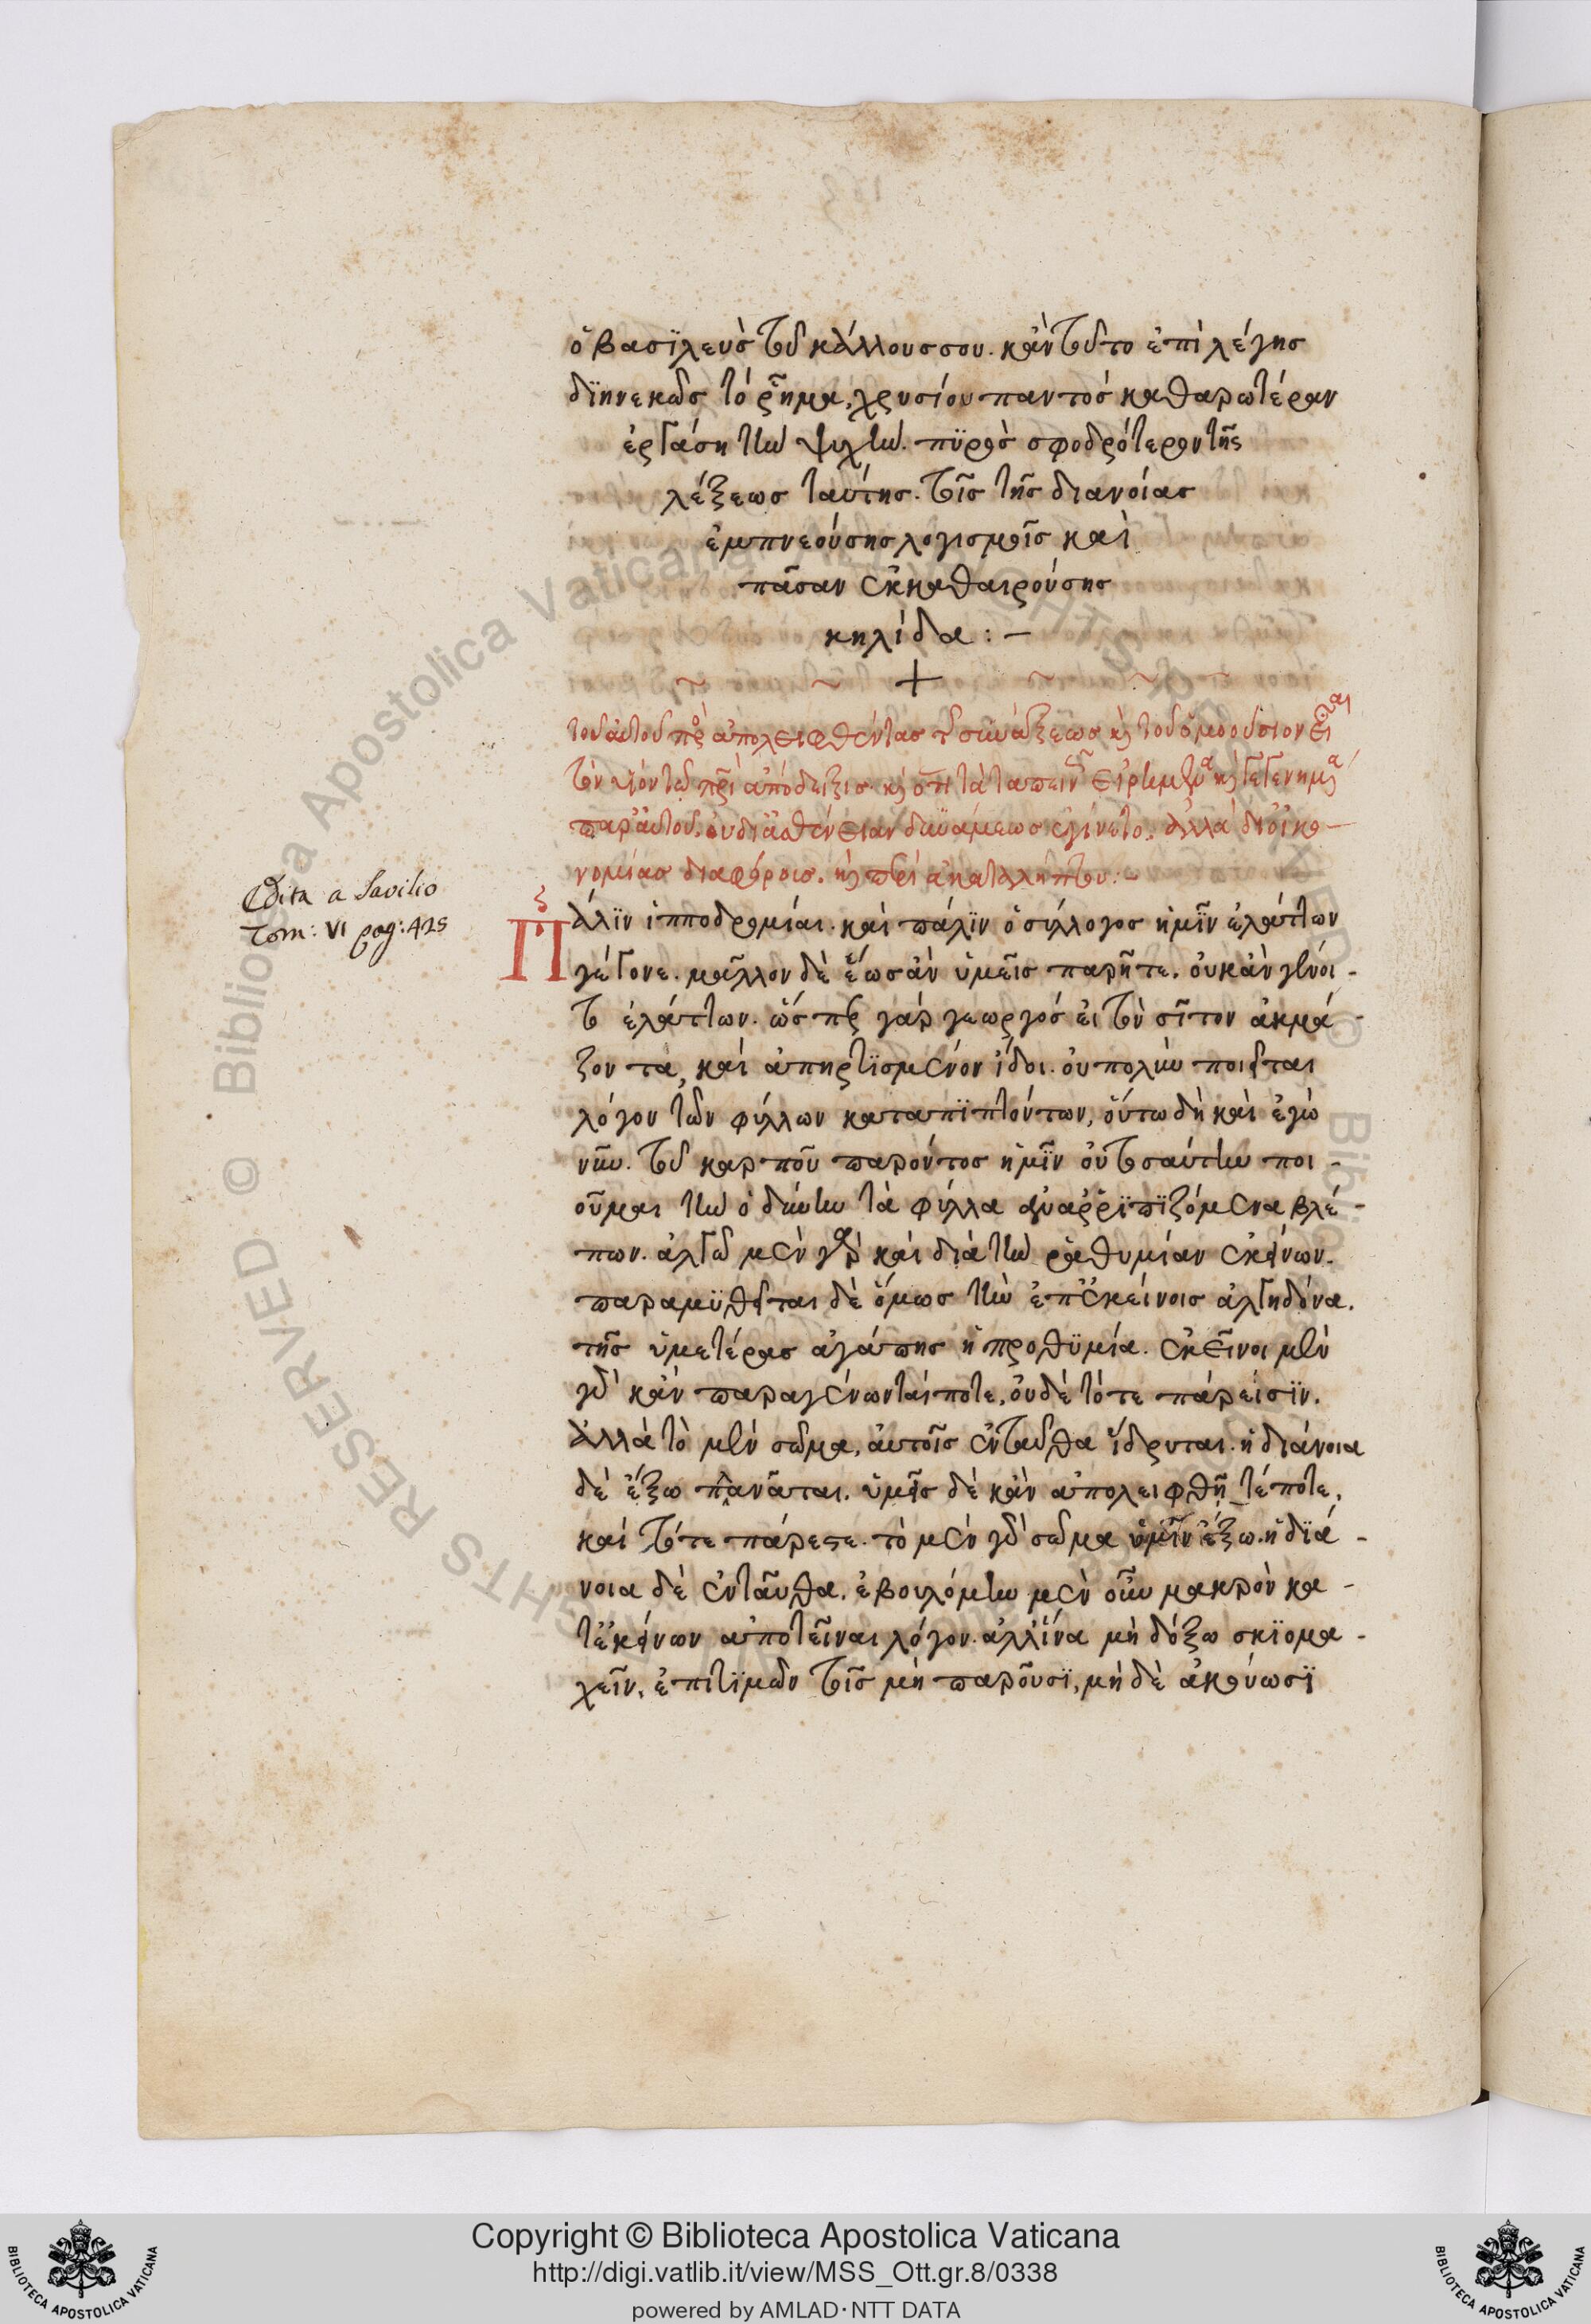 ὁ βασϊλεὺς τοῦ κάλλους σου. κἂν τοῦτο ἐπιλέγης
δϊηνεκῶς τὸ ῥῆμα, χρυσίου παντὸς καθαρωτέραν
ἐργάση τὴν ψυχὴν. πϋρὸς σφοδρότερον τῆς
λέξεως ταύτης. τοῖς τῆς διανοίας
ἐμπνεούσης λογισμοῖς καὶ
πᾶσαν ἐκκαθαιρούσης
κηλίδα : –
~ ~ + ~ ~ ~
τοῦ αὐτοῦ πρὸς ἀπολειφθέντας τῆς συνάξεως κ̀ τοῦ ὁμοούσιον εἶναι
τὸν υἱὸν τῶ πρὶ ἀπόδειξις. κ̀ ὅτι τὰ ταπεινῶς εἰρημένα κ̀ γεγενημένα
παρ' αὐτοῦ. οὐ δι' ἀσθένειαν δυνάμεως ἐγίνετο. ἀλλὰ δι' οἰκο–
νομίας διαφόροις. κ̀ περὶ ἀκαταλήπτου: –
Edita a Savilio
Tom: VI pag: 425
ζ
Πάλϊν ἱπποδρομίαι. καὶ πάλϊν ὁ σύλλογος ἡμῖν ἐλάττων
γέγονε. μᾶλλον δὲ ἕως ἂν ὑμεῖς παρῆτε. οὐκ ἂν γένοι-
το ἐλάττων. ὥσπερ γὰρ γεωργὸς εἰ τὸν σῖτον ἀκμά-
ζοντα, καὶ ἀπηρτϊσμένον ἴδοι. οὐ πολὺν ποιεῖται
λόγον τῶν φύλλων καταπϊπτόντων, οὕτω δὴ καὶ ἐγὼ
νῦν. τοῦ καρποῦ παρόντος ἡμῖν οὐ τοσαύτην ποι-
οῦμαι τὴν ὀδύνην τὰ φύλλα ἀναρρϊπϊζόμενα βλέ-
πων. ἀλγῶ μὲν γὰρ καὶ διὰ τὴν ῥαθυμίαν ἐκείνων.
παραμϋθεῖται δὲ ὅμως τὴν ἐπ' ἐκείνοις ἀλγηδόνα.
τῆς ὑμετέρας ἀγάπης ἡ προθϋμία. ἐκεῖνοι μὲν
γὰρ κἂν παραγένωνταί ποτε, οὐδὲ τότε πάρεισϊν.
ἀλλὰ τὸ μὲν σῶμα, αὐτοῖς ἐνταῦθα ἵδρυται. ἡ διάνοια
δὲ ἔξω πλανᾶται. ὑμεῖς δὲ κἂν ἀπολειφθῆτέ ποτε,
καὶ τότε πάρεστε. τὸ μὲν γὰρ σῶμα ὑμῖν ἔξω. ἡ δϊά-
νοια δὲ ἐνταῦθα. ἐβουλόμην μὲν οὖν μακρὸν κα-
τ' ἐκείνων ἀποτεῖναι λόγον. ἀλλ' ἵνα μὴ δόξω σκϊομα-
χεῖν, ἐπιτϊμῶν τοῖς μὴ παροῦσϊ, μὴ δὲ ἀκούωσϊ
Copyright © Biblioteca Apostolica Vaticana
http://digi.vatlib.it/view/MSS_Ott.gr.8/0338
powered by AMLAD·NTT DATA